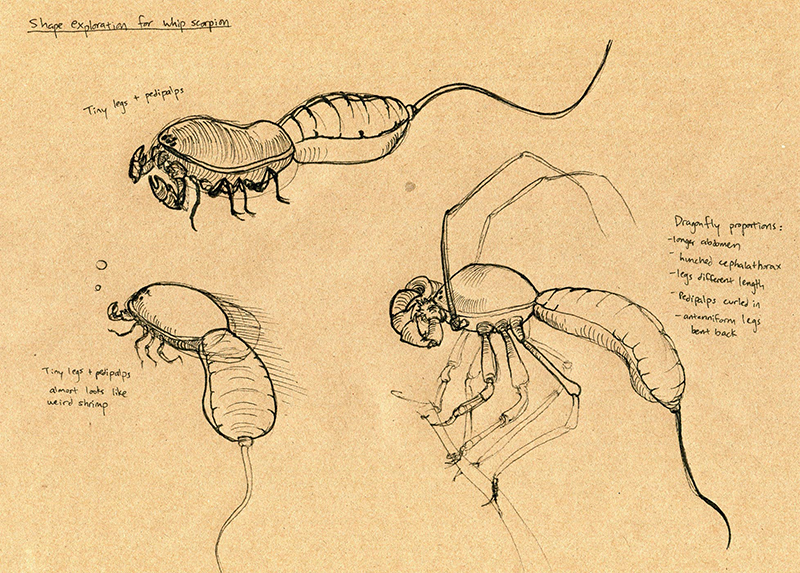 Shape exploration for whip scorpion
Tiny legs + pedipalps
Dragonfly proportions:
- longer abdomen
- hunched cephalathorax
- legs different length
- Pedipalps curled in
- antenniform legs
bent back
Tiny legs + pedipalps
almost looks like
weird shrimp